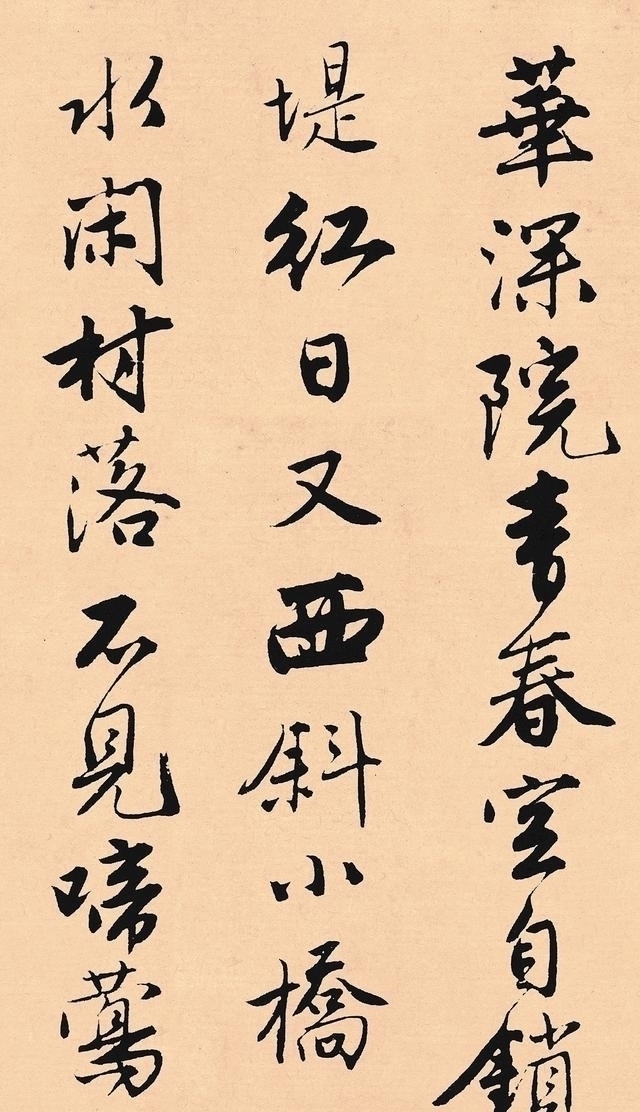 華深院青春空自鎖
堤紅日又西斜小橋
水闲村落不見啼鶯